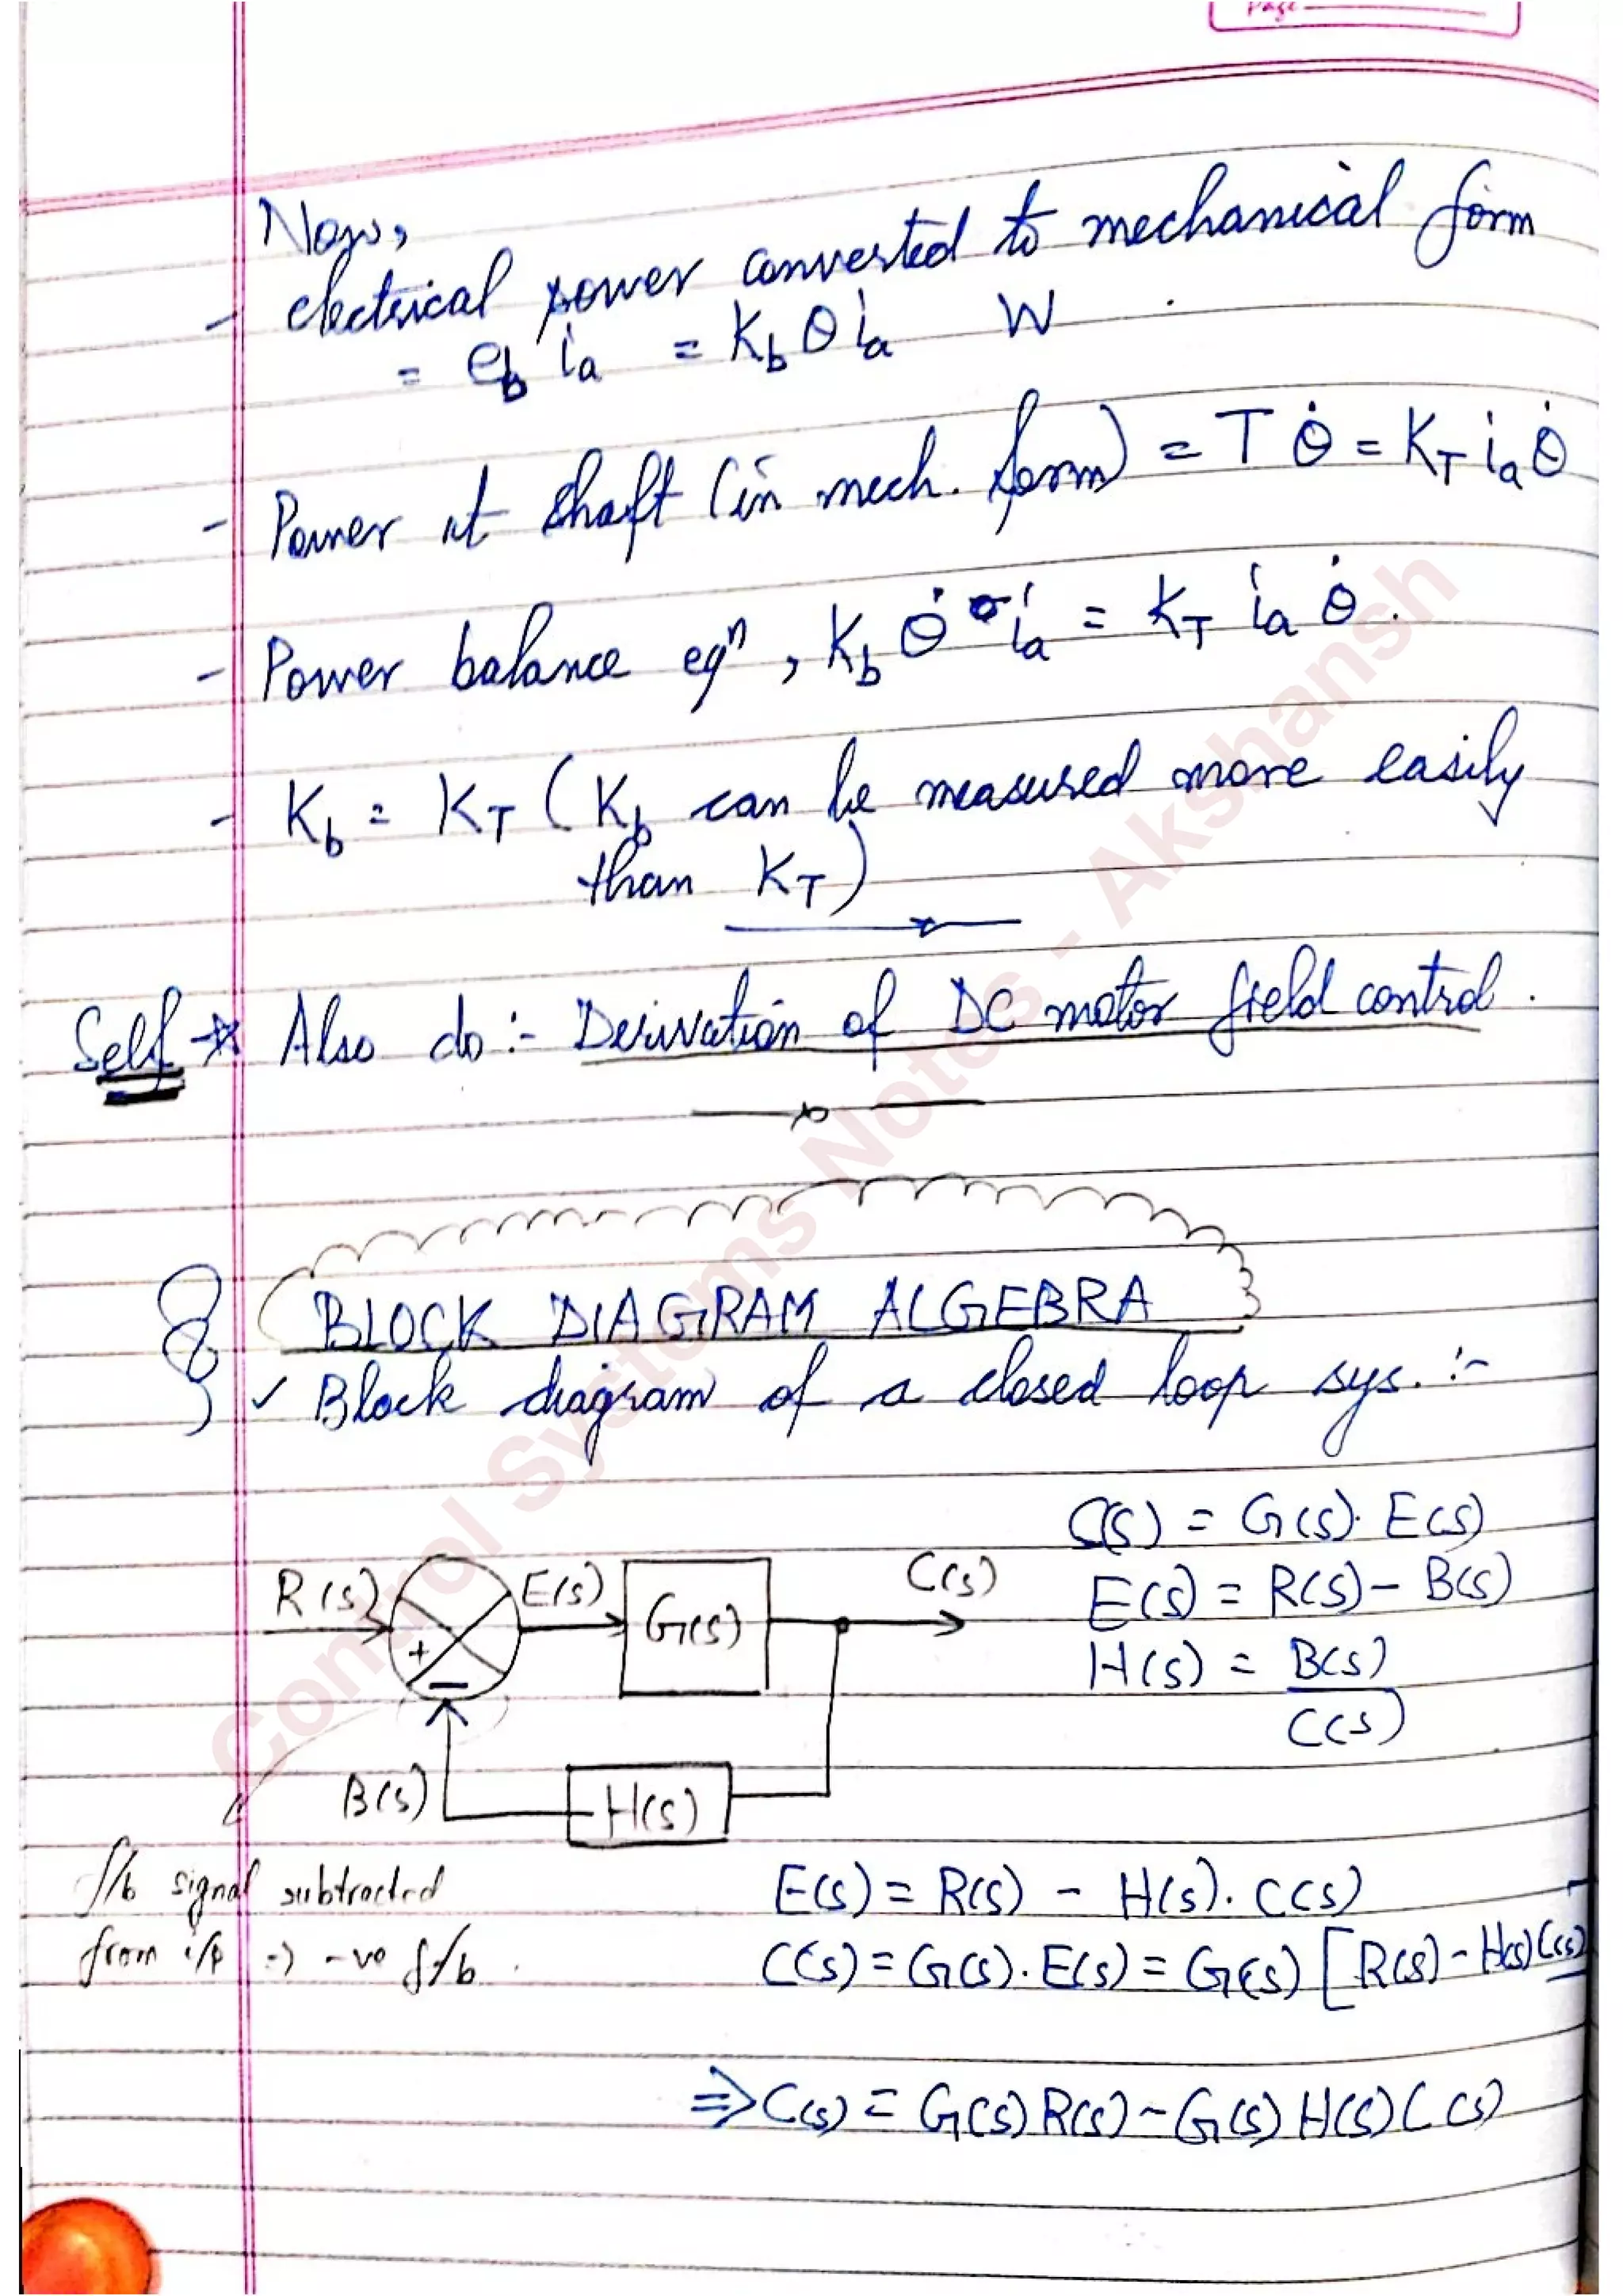 Page
Now,
- electrical power converted to mechanical form
= e_b i_a = K_b θ i_a W
- Power at shaft (in mech. form) = T θ̇ = K_T i_a θ̇
- Power balance eqⁿ, K_b θ̇ i_a = K_T i_a θ̇.
- K_b = K_T (K_b can be measured more easily
than K_T)
Self * Also do :- Derivation of DC motor field control.
BLOCK DIAGRAM ALGEBRA
✓ Block diagram of a closed loop sys. :-
C(s) = G(s). E(s)
R(s) E(s) G(s) C(s)
+
−
E(s) = R(s) - B(s)
H(s) = B(s)
C(s)
B(s) H(s)
f/b signal subtracted
from i/p ⇒ -ve f/b.
E(s) = R(s) - H(s). C(s)
C(s) = G(s). E(s) = G(s) [R(s) - H(s) C(s)
⇒ C(s) = G(s) R(s) - G(s) H(s) C(s)
Control Systems Notes - Akshansh